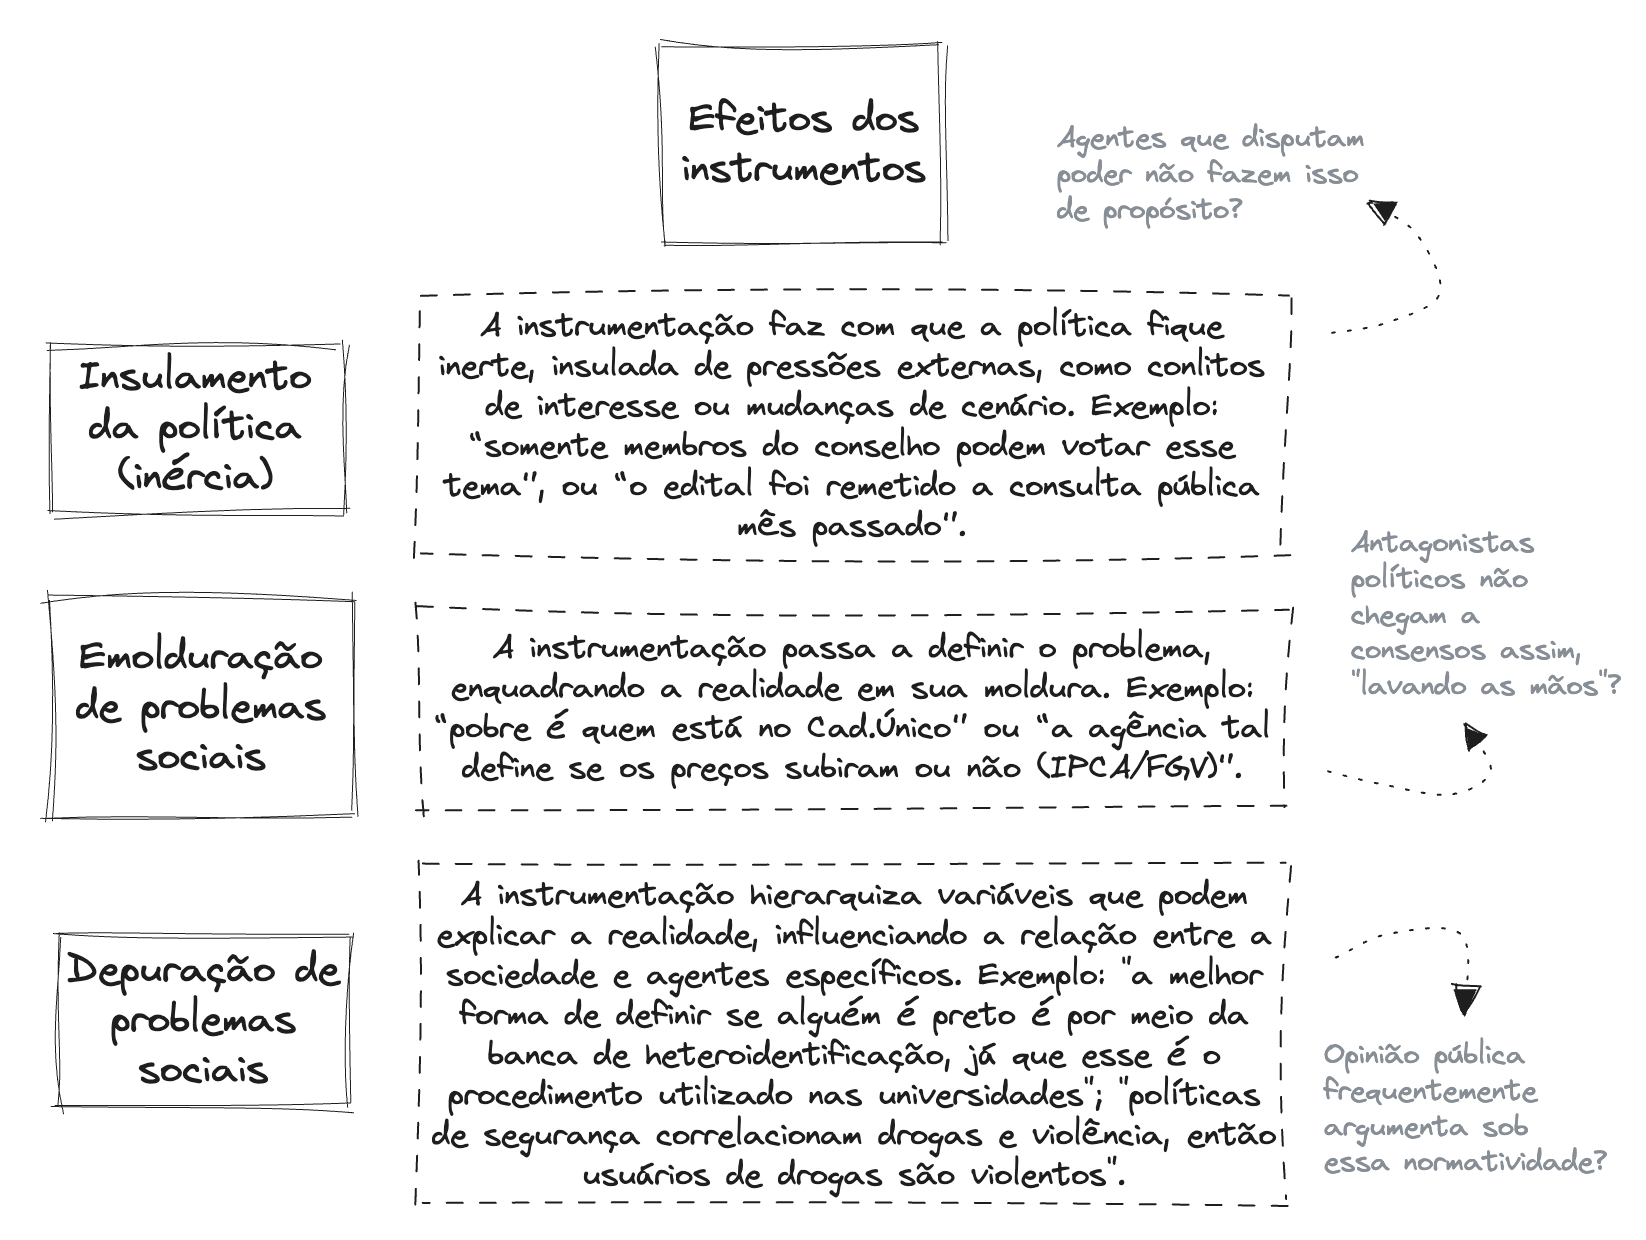 Efeitos dos
instrumentos
Agentes que disputam
poder não fazem isso
de propósito?
Insulamento
da política
(inércia)
A instrumentação faz com que a política fique
inerte, insulada de pressões externas, como conlitos
de interesse ou mudanças de cenário. Exemplo:
“somente membros do conselho podem votar esse
tema”, ou “o edital foi remetido a consulta pública
mês passado”.
Emolduração
de problemas
sociais
A instrumentação passa a definir o problema,
enquadrando a realidade em sua moldura. Exemplo:
“pobre é quem está no Cad.Único” ou “a agência tal
define se os preços subiram ou não (IPCA/FGV)”.
Antagonistas
políticos não
chegam a
consensos assim,
"lavando as mãos"?
Depuração de
problemas
sociais
A instrumentação hierarquiza variáveis que podem
explicar a realidade, influenciando a relação entre a
sociedade e agentes específicos. Exemplo: "a melhor
forma de definir se alguém é preto é por meio da
banca de heteroidentificação, já que esse é o
procedimento utilizado nas universidades"; "políticas
de segurança correlacionam drogas e violência, então
usuários de drogas são violentos".
Opinião pública
frequentemente
argumenta sob
essa normatividade?